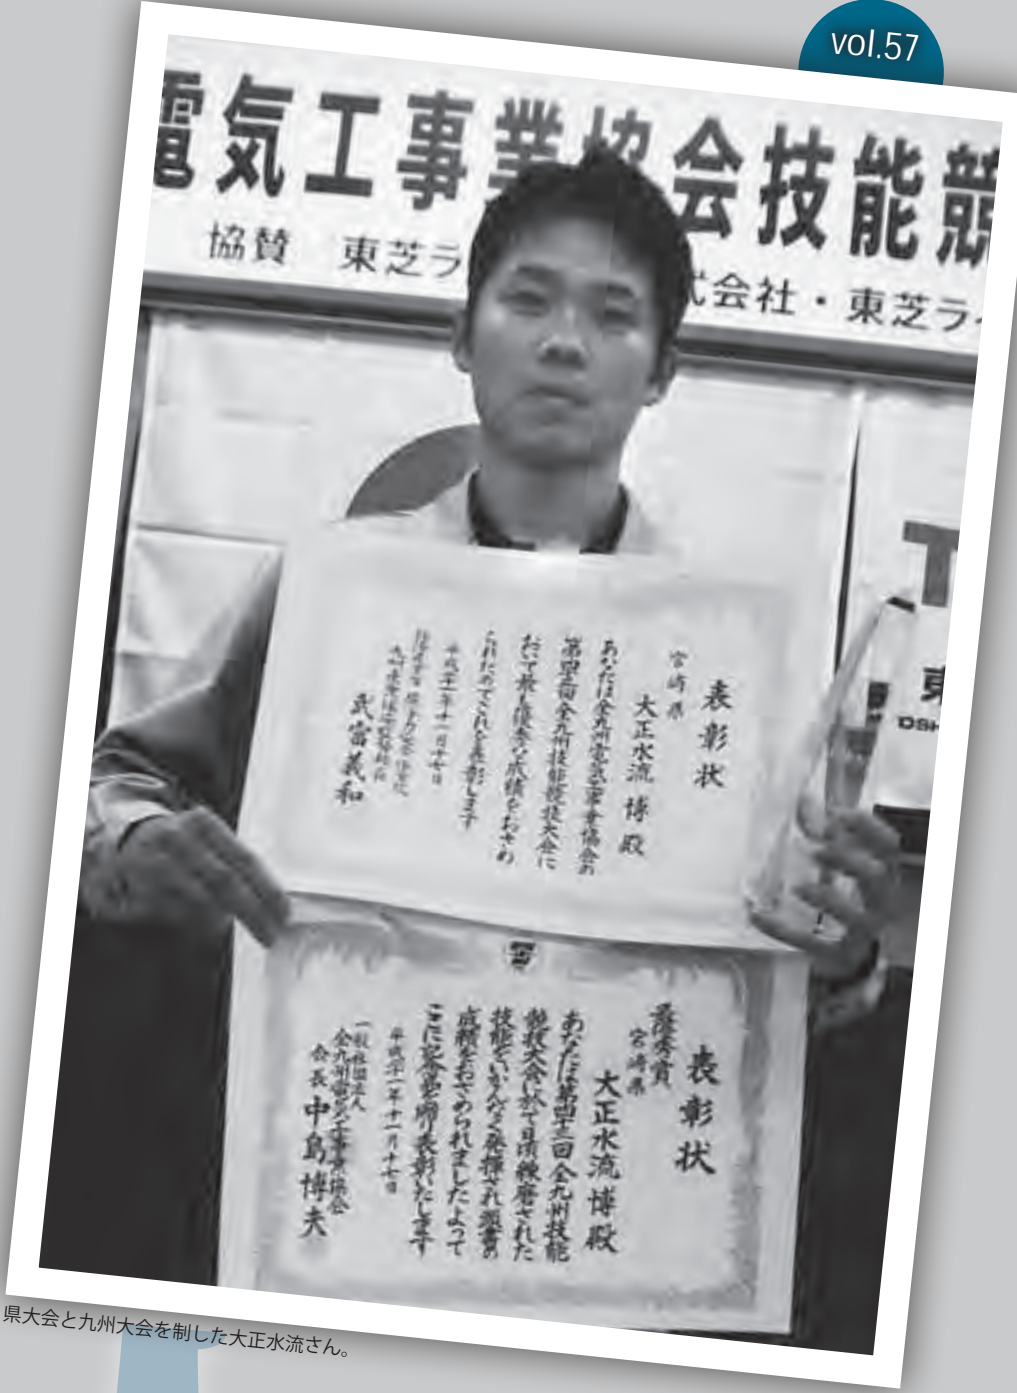 vol.57
電気工事業協会技能競
協賛 東芝ラ
式会社・東芝ラ
東
OSH
表彰状
宮崎県
大正水流 博 殿
あなたは全九州電気工事業協会の
第四十三回全九州技能競技大会に
おいて最も優秀な成績をおさめ
られたのでこれを表彰します
武富義和
表彰状
最優秀賞
宮崎県
大正水流 博 殿
あなたは第四十三回全九州技能
競技大会に於て日頃練磨された
技能をいかんなく発揮され頭書の
成績をおさめられましたよって
ここに記念品を贈り表彰いたします
平成二十一年十一月十七日
一般社団法人
全九州電気工事業協会
会長 中島博夫
県大会と九州大会を制した大正水流さん。